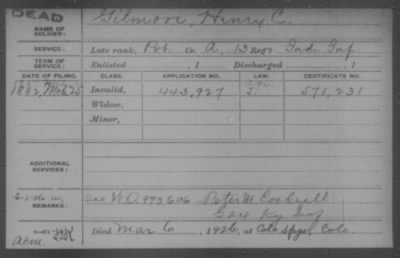 DEAD
NAME OF SOLDIER: Gilmore, Henry C.
SERVICE: Late rank, Pvt. Co. A, 13 Reg't Ind. Inf
TERM OF SERVICE: Enlisted , 1 Discharged , 1
DATE OF FILING. CLASS. APPLICATION NO. LAW. CERTIFICATE NO.
1882, Mch 25 Invalid, 443,927 F. 571,231
Widow,
Minor,
ADDITIONAL SERVICES:
REMARKS: W.O. 973,606 Peter M Cockrell
Ky Inf
Died Mar 6, 1926, at Colo Spgs, Colo.